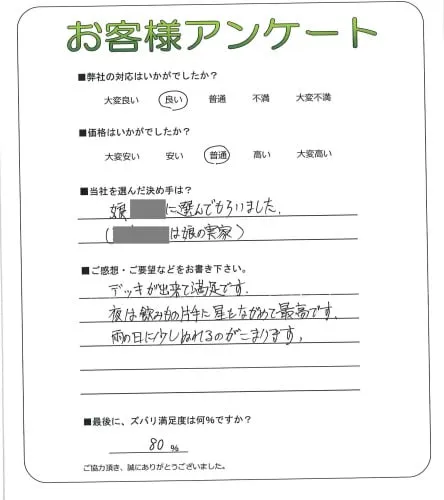 お客様アンケート
■弊社の対応はいかがでしたか?
大変良い 良い 普通 不満 大変不満
■価格はいかがでしたか?
大変安い 安い 普通 高い 大変高い
■当社を選んだ決め手は?
娘 に選んでもらいました。
( は娘の実家)
■ご感想・ご要望などをお書き下さい。
デッキが出来て満足です。
夜は飲みもの片手に星をながめて最高です。
雨の日に少しぬれるのがこまります。
■最後に、ズバリ満足度は何%ですか?
80 %
ご協力頂き、誠にありがとうございました。